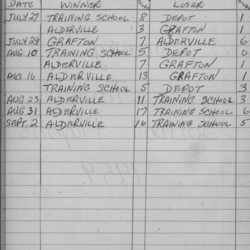 DATE WINNER LOSER
JULY 27 TRAINING SCHOOL 8 DEPOT
ALDERVILLE 3 GRAFTON 1
JULY 29 GRAFTON 7 ALDERVILLE 6
AUG. 10 TRAINING SCHOOL 5 DEPOT 0
ALDERVILLE 7 GRAFTON 1
AUG 16 ALDERVILLE 13 GRAFTON 1
TRAINING SCHOOL 5 DEPOT 3
AUG 23 ALDERVILLE 11 TRAINING SCHOOL 3
AUG 31 ALDERVILLE 17 TRAINING SCHOOL 6
SEPT. 2 ALDERVILLE 16 TRAINING SCHOOL 5